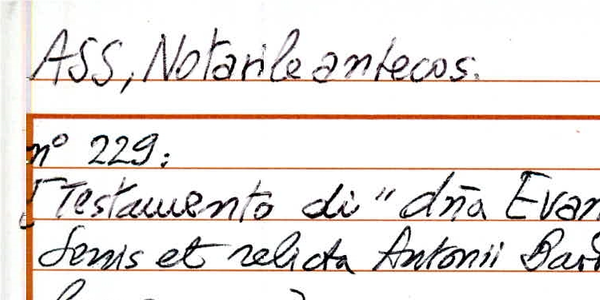 ASS, Notarile antecos.
nº 229:
[Testamento di "dña Evan
Senis et relicta Antonii Bar